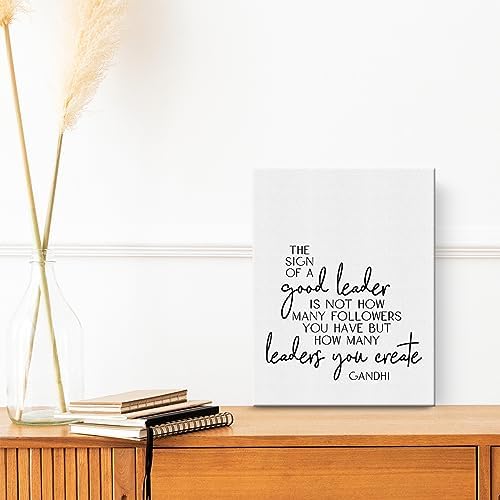 THE
SIGN
OF A
good leader
IS NOT HOW
MANY FOLLOWERS
YOU HAVE BUT
HOW MANY
leaders you create
GANDHI